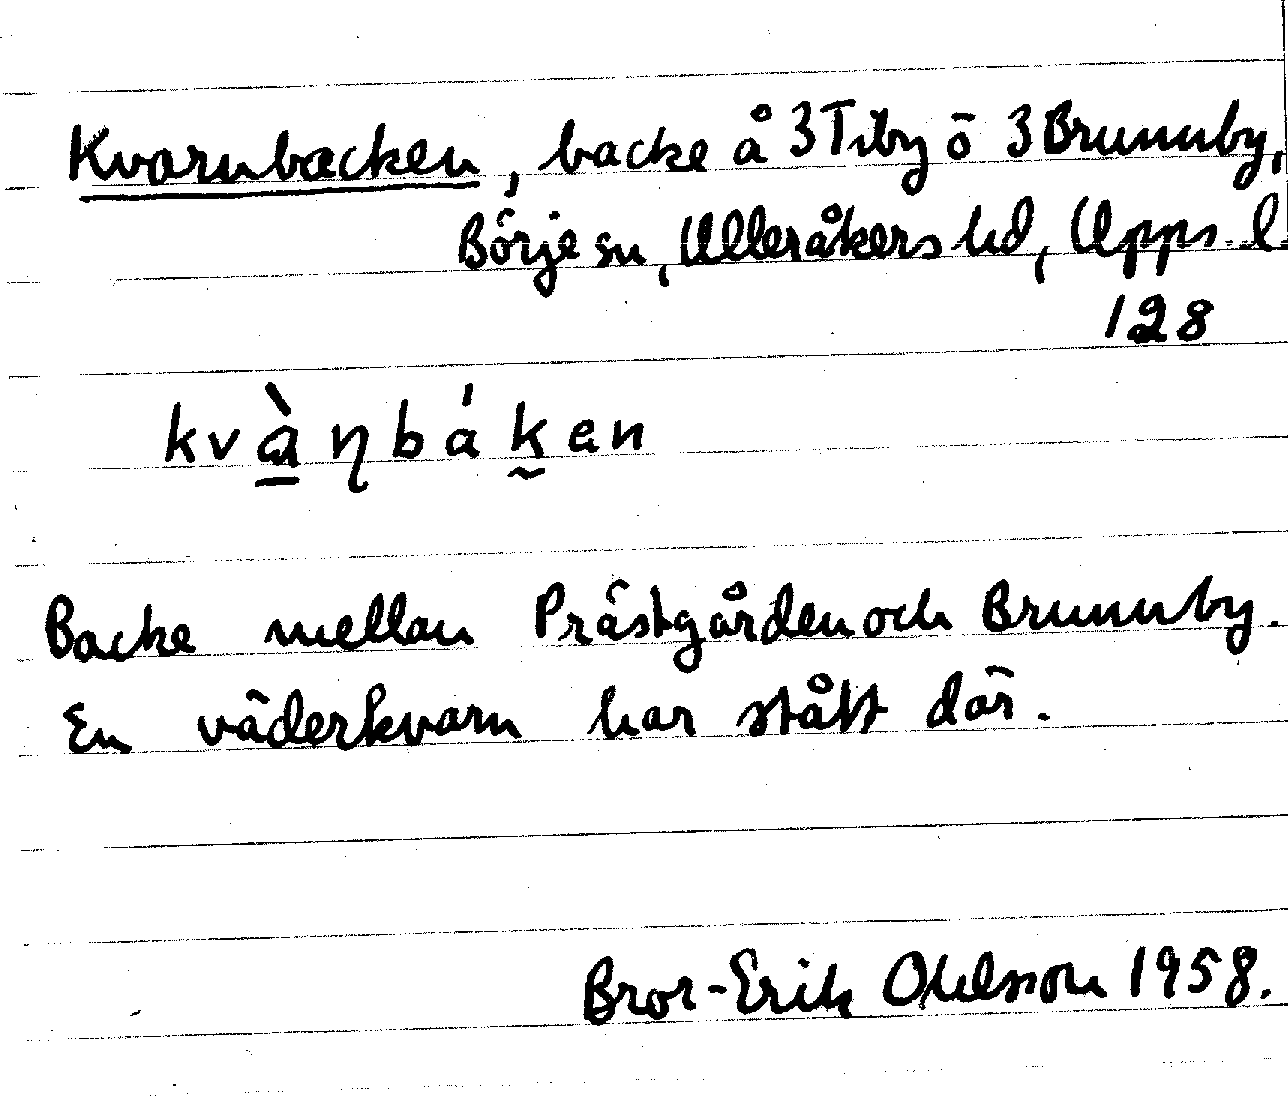 Kvarnbacken, backe å 3 Tiby ö 3 Brunnby,
Börje sn, Ulleråkers hd, Upps. l
128
kvà̱ɳbák̃ͅen
Backe mellan Prästgården och Brunnby.
En väderkvarn har stått där.
Bror-Erik Ohlsson 1958.